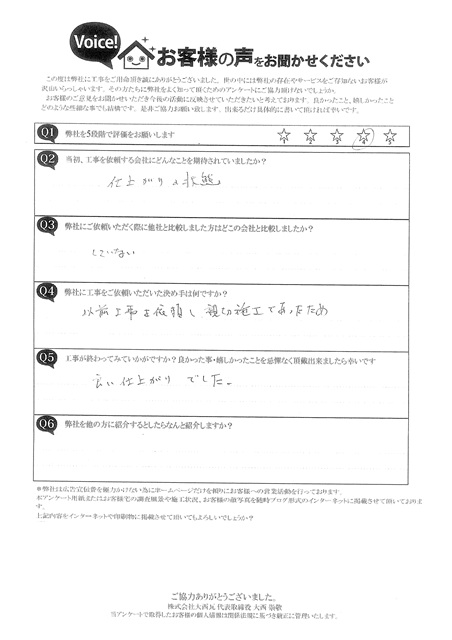 Voice!
お客様の声をお聞かせください
この度は弊社に工事をご用命頂き誠にありがとうございました。世の中には弊社の存在やサービスをご存知ないお客様が
沢山いらっしゃいます。その方たちに弊社をよく知って頂くためのアンケートにご協力頂けないでしょうか。
お客様のご意見をお聞かせいただき今後の活動に反映させていただきたいと考えております。良かったこと、嬉しかったこと
どのような些細な事でも結構です、是非ご協力お願い致します。出来るだけ具体的に書いて頂ければ幸いです。
Q1 弊社を5段階で評価をお願いします
Q2 当初、工事を依頼する会社にどんなことを期待されていましたか?
仕上がりの状態
Q3 弊社にご依頼いただく際に他社と比較しました方はどこの会社と比較しましたか?
していない
Q4 弊社に工事をご依頼いただいた決め手は何ですか?
以前工事を依頼し親切施工であったため
Q5 工事が終わってみていかがですか?良かった事・嬉しかったことを忌憚なく頂戴出来ましたら幸いです
良い仕上がりでした。
Q6 弊社を他の方に紹介するとしたらなんと紹介しますか?
※弊社は広告宣伝費を極力かけない為にホームページだけを頼りにお客様への営業活動を行っております。
本アンケート用紙またはお客様宅の調査風景や施工状況、お客様の顔写真を随時ブログ形式のインターネットに掲載させて頂いております。
上記内容をインターネットや印刷物に掲載させて頂いてもよろしいでしょうか?
ご協力ありがとうございました。
株式会社大西瓦 代表取締役 大西 崇敬
当アンケートで取得したお客様の個人情報は関係法規に基づき適正に管理いたします。